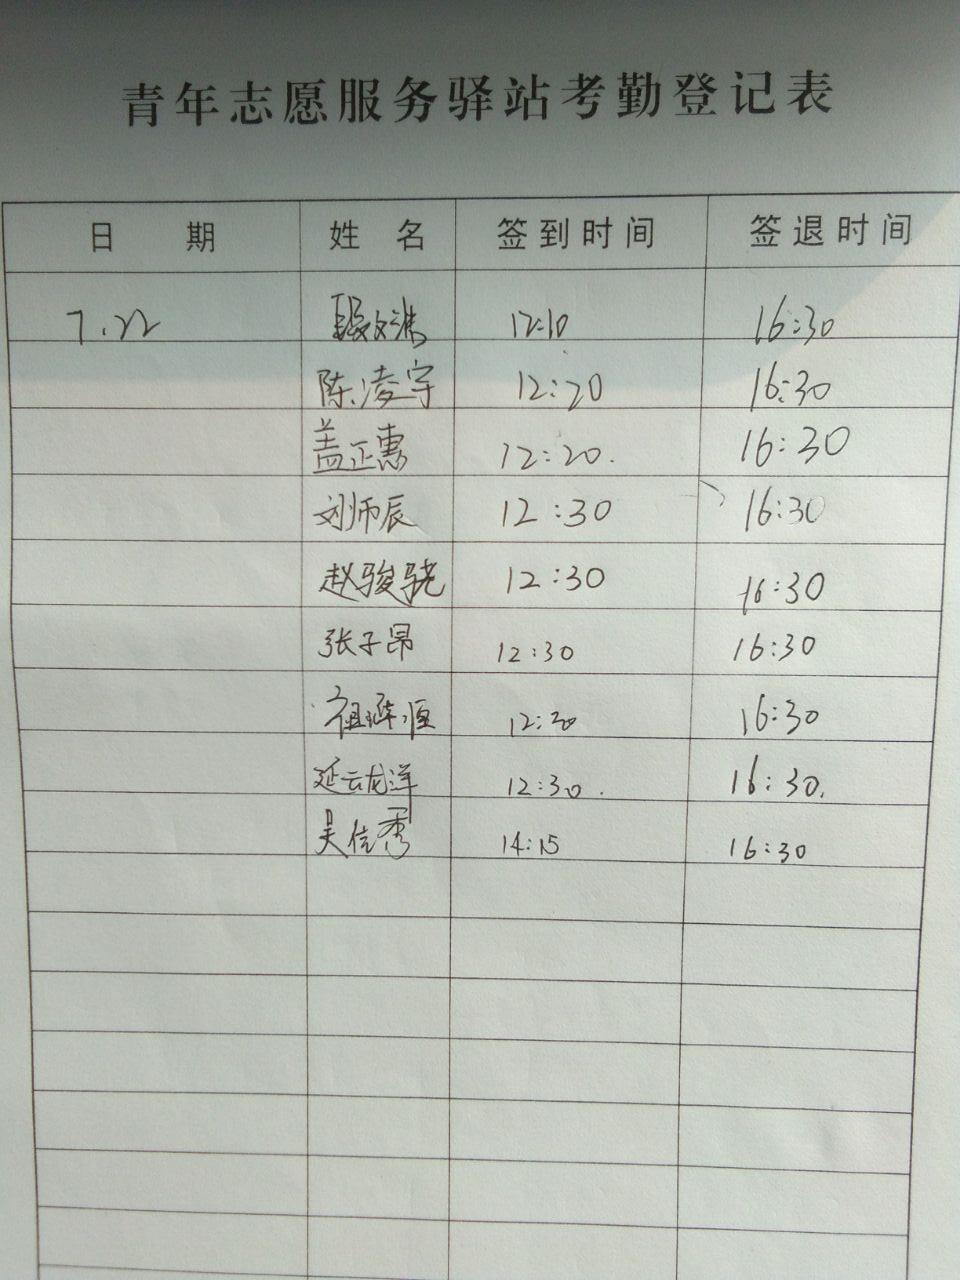 青年志愿服务驿站考勤登记表
日 期 姓 名 签到时间 签退时间
7.22 段文 12:10 16:30
陈凌宇 12:20 16:30
盖正惠 12:20. 16:30
刘师辰 12:30 16:30
赵骏骁 12:30 16:30
张子昂 12:30 16:30
祖 恒 12:30 16:30
延云龙洋 12:30. 16:30.
吴信秀 14:15 16:30